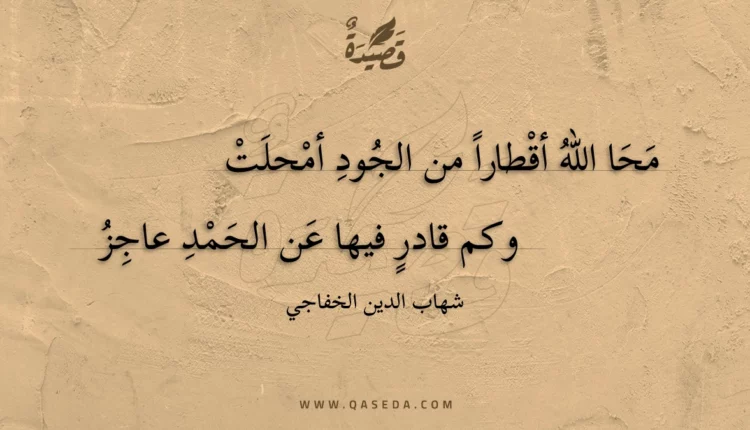 قَصِيْدَةٌ
مَحَا اللهُ أقْطاراً من الجُودِ أمْحلَتْ
وكم قادرٍ فيها عَن الحَمْدِ عاجِزُ
شهاب الدين الخفاجي
WWW.QASEDA.COM